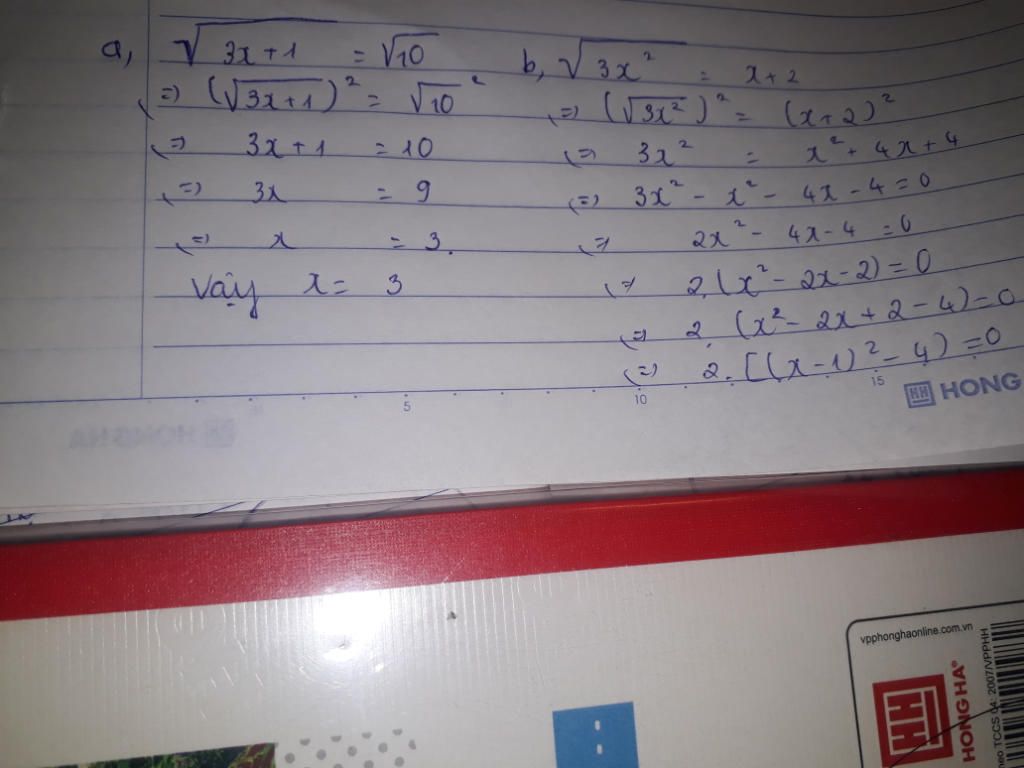 a, √(3x+1) = √10
(=) (√(3x+1))² = √10²
(=) 3x+1 = 10
(=) 3x = 9
(=) x = 3.
Vậy x = 3
b, √(3x²) = x+2
(=) (√(3x²))² = (x+2)²
(=) 3x² = x² + 4x + 4
(=) 3x² - x² - 4x - 4 = 0
(=) 2x² - 4x - 4 = 0
(=) 2.(x² - 2x - 2) = 0
(=) 2. (x² - 2x + 2 - 4) = 0
(=) 2. [(x-1)² - 4) = 0
5 10 15
HH HONG
HONG HA
vpphonghaonline.com.vn
HH
HONG HA®
heo TCCS 04: 2007/VPPHH